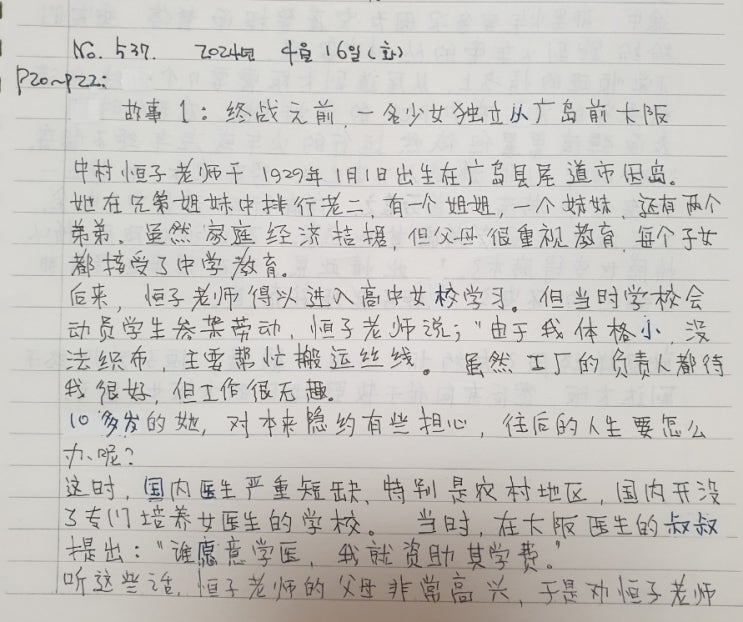 No. 537. 2024년 4월 16일(화)
p20~p22:
故事 1：终战元前，一名少女独立从广岛前大阪
中村恒子老师于 1929年 1月1日出生在广岛县尾道市因岛。
她在兄弟姐妹中排行老二，有一个姐姐，一个妹妹，还有两个
弟弟。虽然家庭经济拮据，但父母很重视教育，每个子女
都接受了中学教育。
后来，恒子老师得以进入高中女校学习。但当时学校会
动员学生参架劳动，恒子老师说；"由于我体格小，没
法织布，主要帮忙搬运丝线。虽然工厂的负责人都待
我很好，但工作很无趣。
10多岁的她，对本来隐约有些担心，往后的人生要怎么
办呢？
这时，国内医生严重短缺，特别是农村地区，国内开设
了专门培养女医生的学校。当时，在大阪医生的叔叔
提出："谁愿意学医，我就资助其学费。"
听这些话，恒子老师的父母非常高兴，于是劝恒子老师